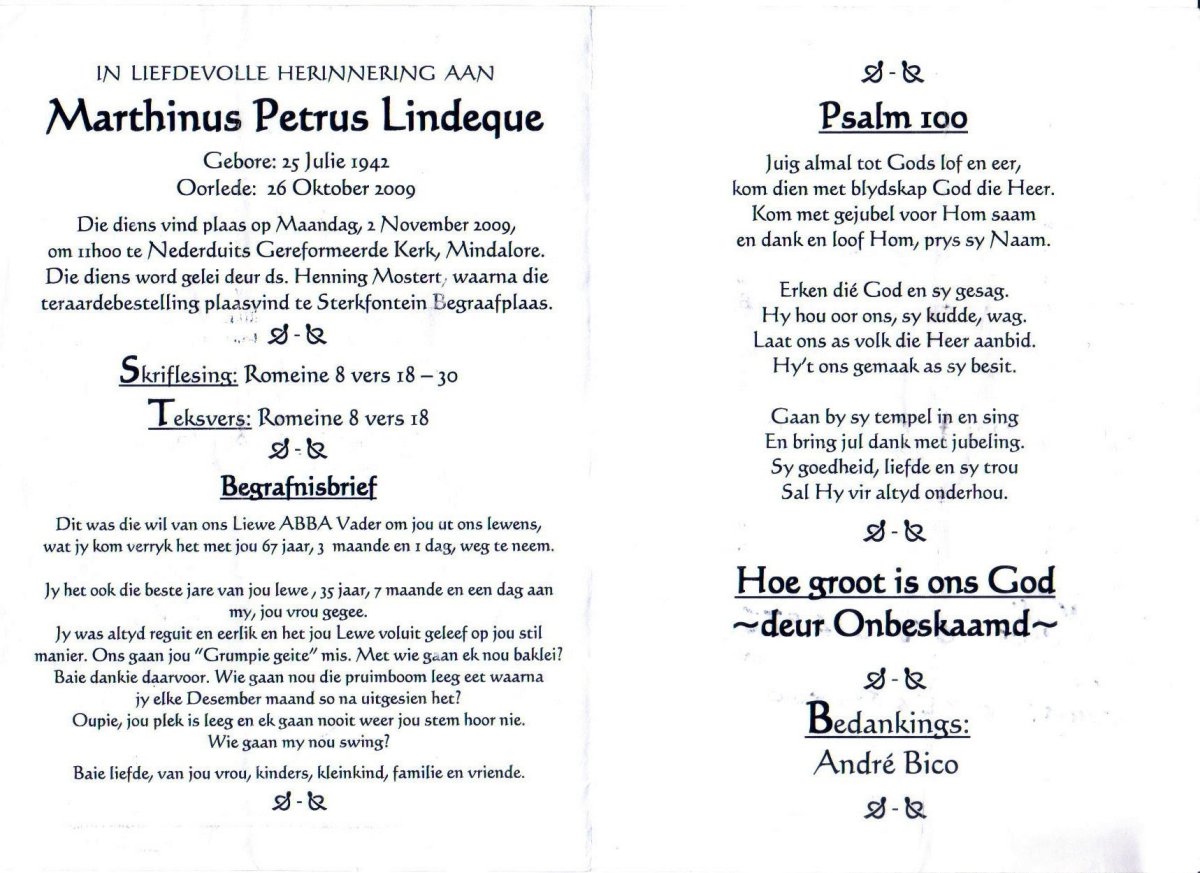 IN LIEFDEVOLLE HERINNERING AAN
Marthinus Petrus Lindeque
Gebore: 25 Julie 1942
Oorlede: 26 Oktober 2009
Die diens vind plaas op Maandag, 2 November 2009,
om 11h00 te Nederduits Gereformeerde Kerk, Mindalore.
Die diens word gelei deur ds. Henning Mostert, waarna die
teraardebestelling plaasvind te Sterkfontein Begraafplaas.
Skriflesing: Romeine 8 vers 18 – 30
Teksvers: Romeine 8 vers 18
Begrafnisbrief
Dit was die wil van ons Liewe ABBA Vader om jou ut ons lewens,
wat jy kom verryk het met jou 67 jaar, 3 maande en 1 dag, weg te neem.
Jy het ook die beste jare van jou lewe , 35 jaar, 7 maande en een dag aan
my, jou vrou gegee.
Jy was altyd reguit en eerlik en het jou Lewe voluit geleef op jou stil
manier. Ons gaan jou "Grumpie geite" mis. Met wie gaan ek nou baklei?
Baie dankie daarvoor. Wie gaan nou die pruimboom leeg eet waarna
jy elke Desember maand so na uitgesien het?
Oupie, jou plek is leeg en ek gaan nooit weer jou stem hoor nie.
Wie gaan my nou swing?
Baie liefde, van jou vrou, kinders, kleinkind, familie en vriende.
Psalm 100
Juig almal tot Gods lof en eer,
kom dien met blydskap God die Heer.
Kom met gejubel voor Hom saam
en dank en loof Hom, prys sy Naam.
Erken dié God en sy gesag.
Hy hou oor ons, sy kudde, wag.
Laat ons as volk die Heer aanbid.
Hy't ons gemaak as sy besit.
Gaan by sy tempel in en sing
En bring jul dank met jubeling.
Sy goedheid, liefde en sy trou
Sal Hy vir altyd onderhou.
Hoe groot is ons God
~deur Onbeskaamd~
Bedankings:
André Bico